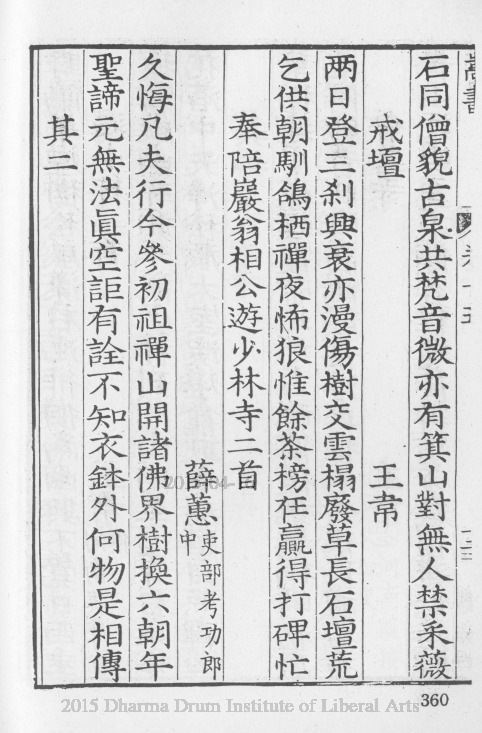 嵩書
卷十五
石同僧貌古泉共梵音微亦有箕山對無人禁采薇
戒壇 王常
兩日登三刹興衰亦漫傷樹交雲榻廢草長石壇荒
乞供朝馴鴿栖禪夜怖狼惟餘茶榜在贏得打碑忙
奉陪嚴翁相公遊少林寺二首
薛蕙吏部考功郎中
久悔凡夫行今參初祖禪山開諸佛界樹換六朝年
聖諦元無法眞空詎有詮不知衣鉢外何物是相傳
其二
360
2015 Dharma Drum Institute of Liberal Arts